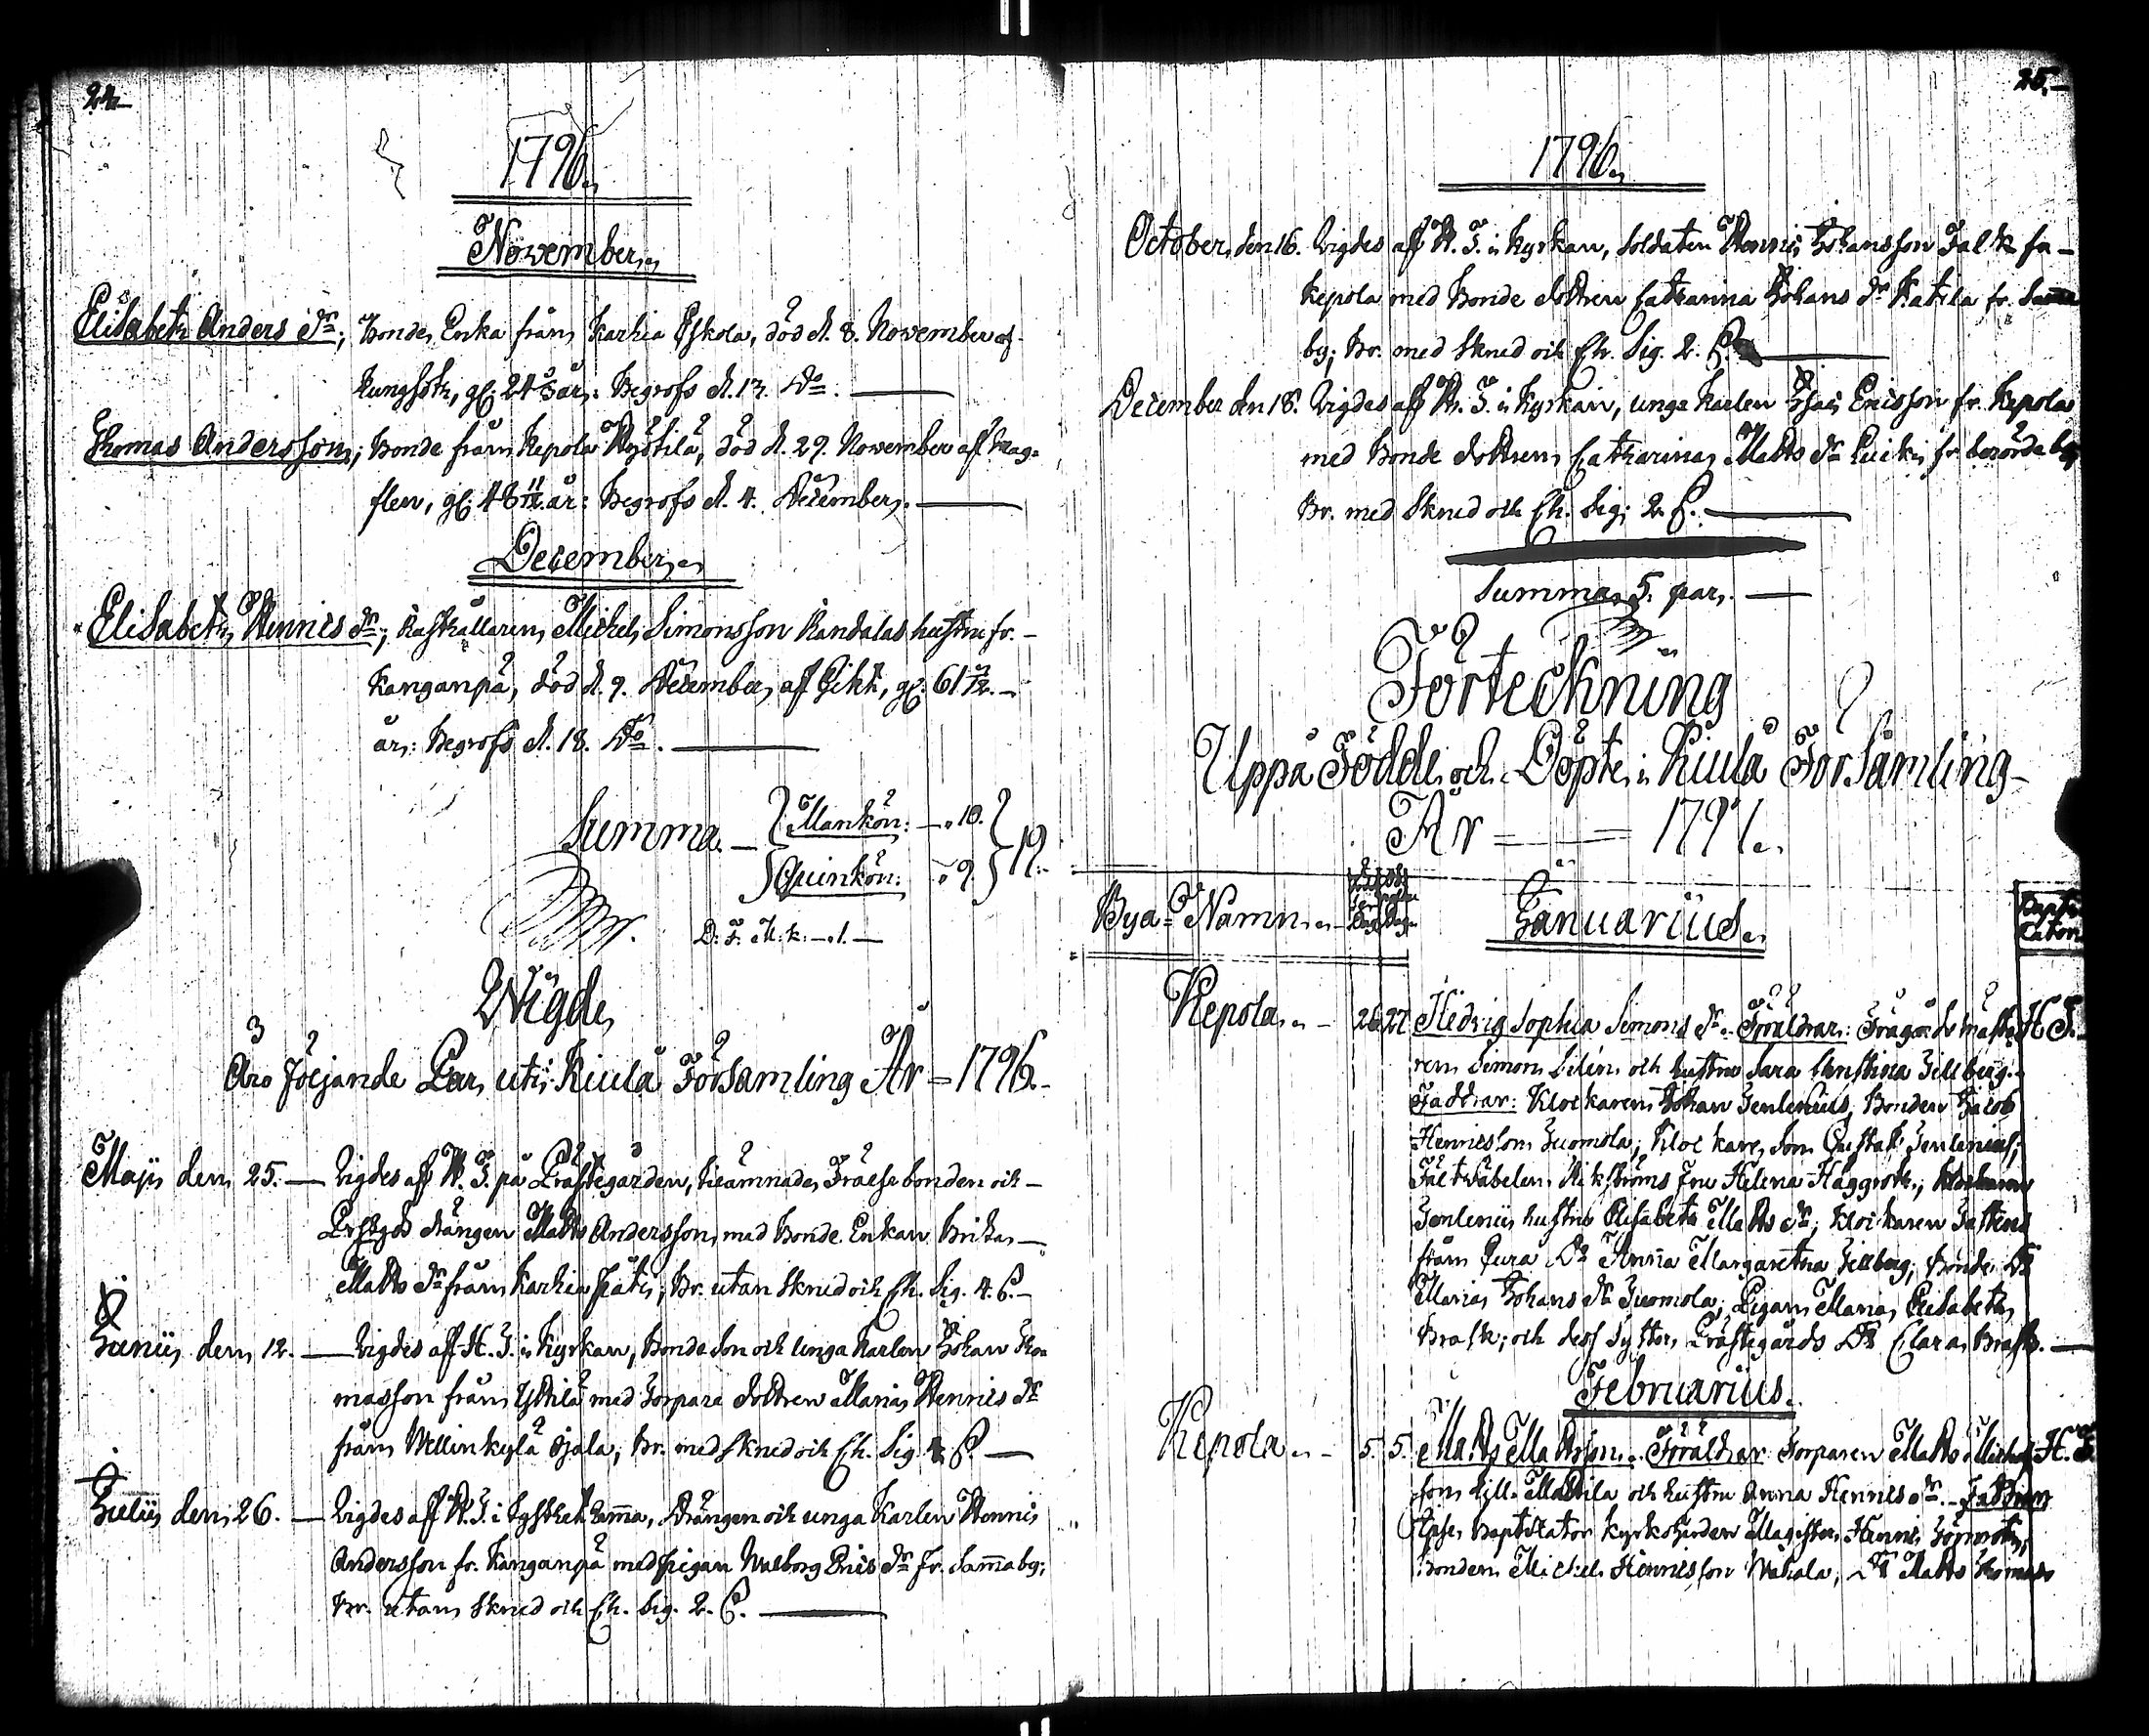 24
1796.
November.
Elisabeth Anders dr; Bonde Enka från Karhia Eskola, död d. 8. November af
lungsoth, gl: 24 år: Begrofs d. 13. Do.
Thomas Andersson; Bonde från Kepola Ryötilä, död d. 29. November af slag-
flen, gl: 48 11/12 år: Begrofs d. 4. December.
December.
Elisabeth Henrics dr; Michel Simonsson Randalas hustru fr.
Kanganpä, död d. 9. December, af Gikt, gl: 61
år: Begrofs d. 18. Do.
Summa Mankön: 10. 19.
Quinkön: 9.
D. F. M. k. 1.
Wigde
Äro följande Par uti Kiula Församling År 1796.
Maji den 25. Vigdes aff H. I. på Prästegården, Frälsebonden och
drängen Matts Andersson, med Bonde Enkan Brita
Matts dr från Karhia; Br. utan skrud och Ch. Sig. 4. ß.
Junii den 12. Vigdes aff H. I. i Kyrkan, Bonde Son och unga Karlen Johan Tho
masson från Ystilä med Torpare dottren Maria Henrics dr
från Mellinkylä Ojala; Br. med skrud och Ch. Sig. ß.
Julii den 26. Vigdes aff H. I. i, Drängen och unga Karlen Henric
Andersson fr. Kanganpä med pigan Walborg Erics dr fr. samma by;
Br. utan skrud och Ch. Sig. 2. ß.
25.
1796.
October den 16. Vigdes aff H. I. i kyrkan, Soldaten Henric Johansson Falk fr.
Kepola med Bonde dottren Catharina Johans dr Katila fr. samma
by; Br. med skrud och Ch. Sig. 2. ß.
December den 18. Vigdes aff H. I. i kyrkan, unga Karlen Isac Ericsson fr. Kepola
med Bonde dottren Catharina Matts dr fr. berörde by
Br. med skrud och Ch. Sig. 2. ß.
Summa 5. par.
Förteckning
Uppå Födde och Döpte i Kiula Församling
År 1797.
Bya-Namn. Januarius.
Kepola 26 27 Hedvig Sophia Simons dr. Föräldrar: Trägårdsmästa H I
ren Simon Silin och hustru Sara Christina Zillberg.
Faddrar: Klockaren Johan Zenlenius, Bonden Jacob
Henricsson Juomola; Klockare Son Gustaf Zenlenius;
Fru Helena Häggroth;
Zenlenii hustru Elisabeth Matts dr; Klockaren
från Eura Do Anna Margaretha Zillberg; Bonde Do
Maria Johans dr Juomola; Pigan Maria Elisabeth
Brask; och dess syster, Prästegårds Do Clara Brask.
Februarius.
Kepola 5. 5. Matts Mattsson. Föräldrar Torparen Matts Michels H. I
son Mattila och hustru Anna Henrics dr. Faddrar
Ipse Baptisator Kyrkoherden Magister Henric
Bonden Michel Henricsson Wahala, Do Matts Thomas